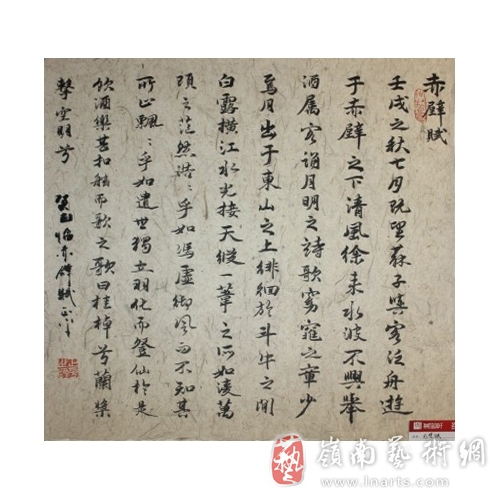 赤壁賦
壬戌之秋七月既望蘇子與客泛舟遊
于赤壁之下清風徐来水波不興舉
酒属客誦月明之詩歌窈窕之章少
焉月出于東山之上徘徊於斗牛之間
白露橫江水光接天縱一葦之所如凌萬
頃之茫然浩:乎如馮虛御風而不知其
所止飄:乎如遺世獨立羽化而登仙於是
飲酒樂甚扣舷而歌之歌曰桂棹兮蘭槳
擊空明兮
臨赤壁賦
嶺南藝術網
www.lnarts.com